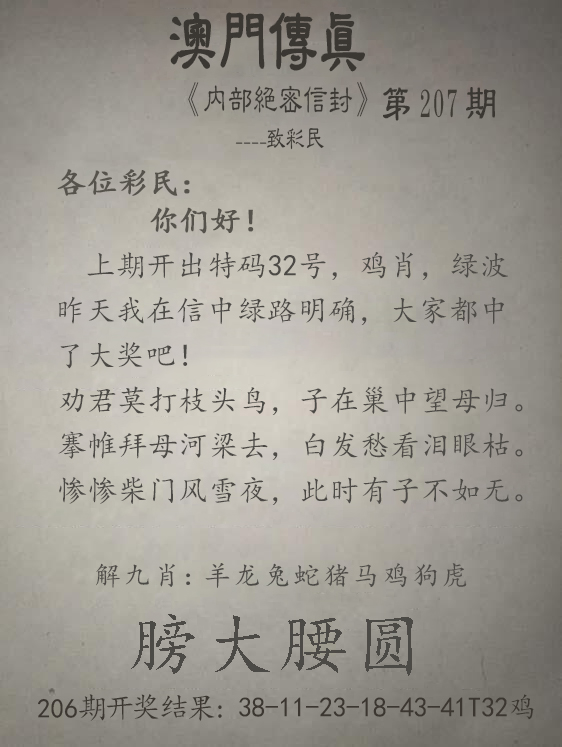 澳門傳眞
《内部絕密信封》第207期
----致彩民
各位彩民：
你们好！
上期开出特码32号，鸡肖，绿波
昨天我在信中绿路明确，大家都中
了大奖吧！
劝君莫打枝头鸟，子在巢中望母归。
搴帷拜母河梁去，白发愁看泪眼枯。
惨惨柴门风雪夜，此时有子不如无。
解九肖：羊龙兔蛇猪马鸡狗虎
膀大腰圆
206期开奖结果：38-11-23-18-43-41T32鸡